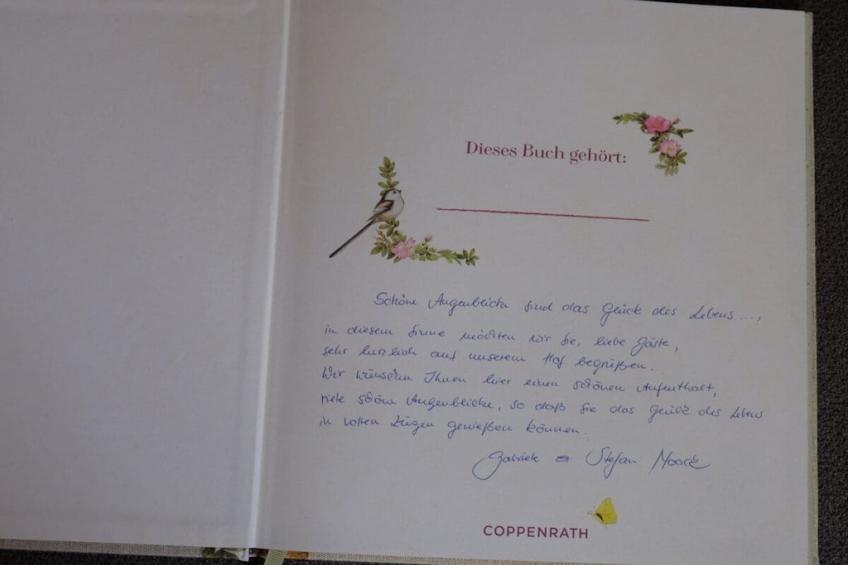 Dieses Buch gehört:
Schöne Augenblicke sind das Glück des Lebens...,
in diesem Sinne möchten wir Sie, liebe Gäste,
sehr herzlich auf unserem Hof begrüßen.
Wir wünschen Ihnen hier einen schönen Aufenthalt,
viele schöne Augenblicke, so daß Sie das Glück des Lebens
in vollen Zügen genießen können.
Gabriele Stefan
COPPENRATH